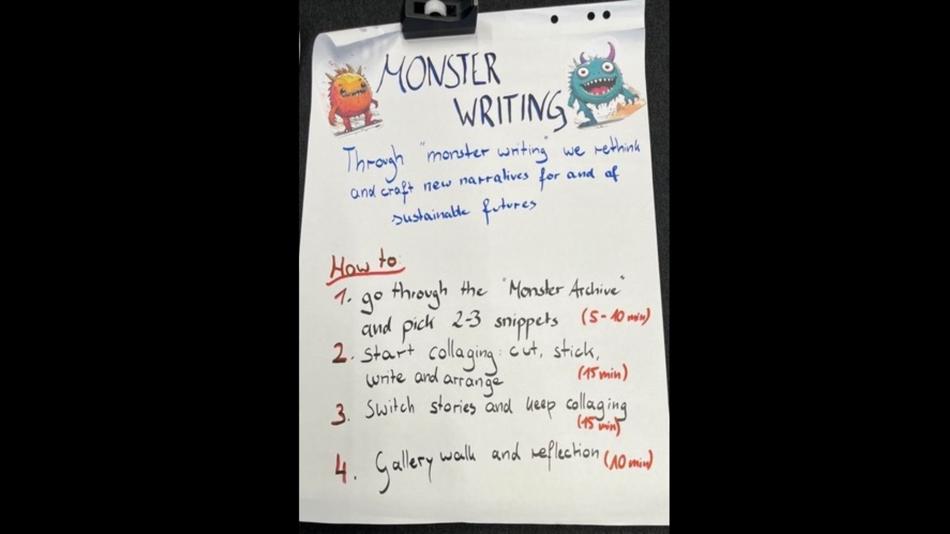 MONSTER
WRITING
Through "monster writing" we rethink
and craft new narratives for and of
sustainable futures
How to:
1. go through the "Monster Archive"
and pick 2-3 snippets (5-10 min)
2. Start collaging: cut, stick,
write and arrange (15 min)
3. Switch stories and keep collaging
(15 min)
4. Gallery walk and reflection (10 min)